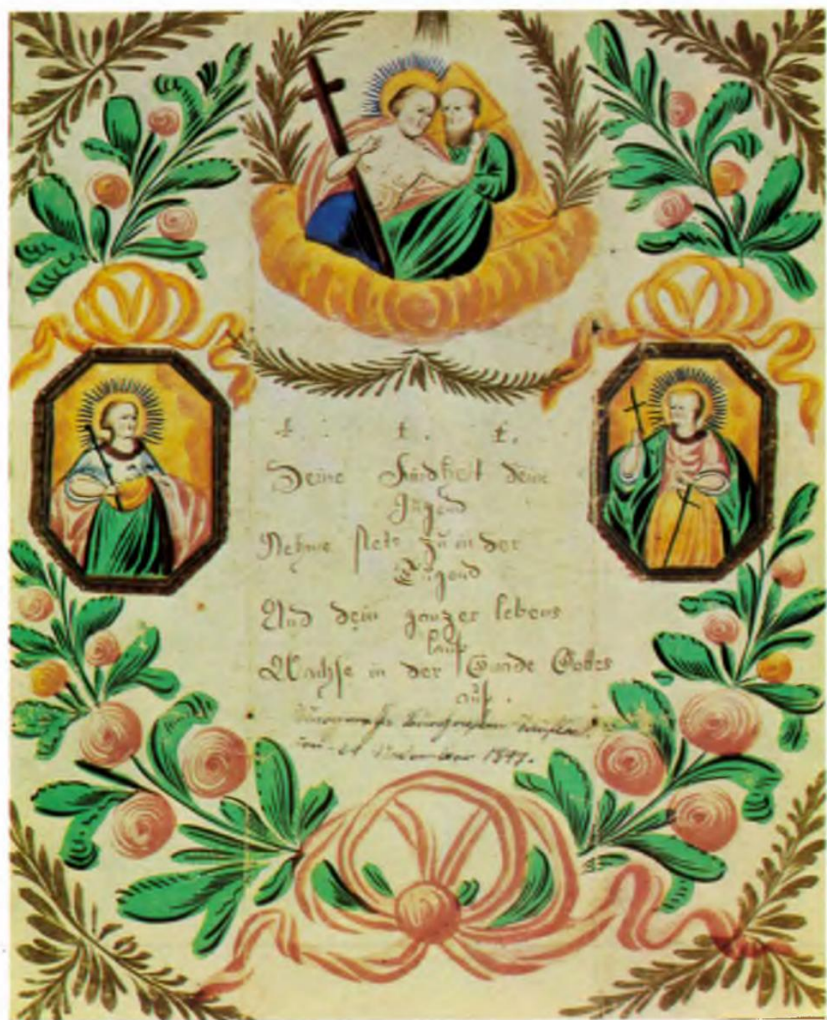 Deine Kindheit deine
Jugend
Nehme stets zu in der
Tugend
Und dein ganzer lebens
lauf
Wachse in der Gnade Gottes
auf.
1847.